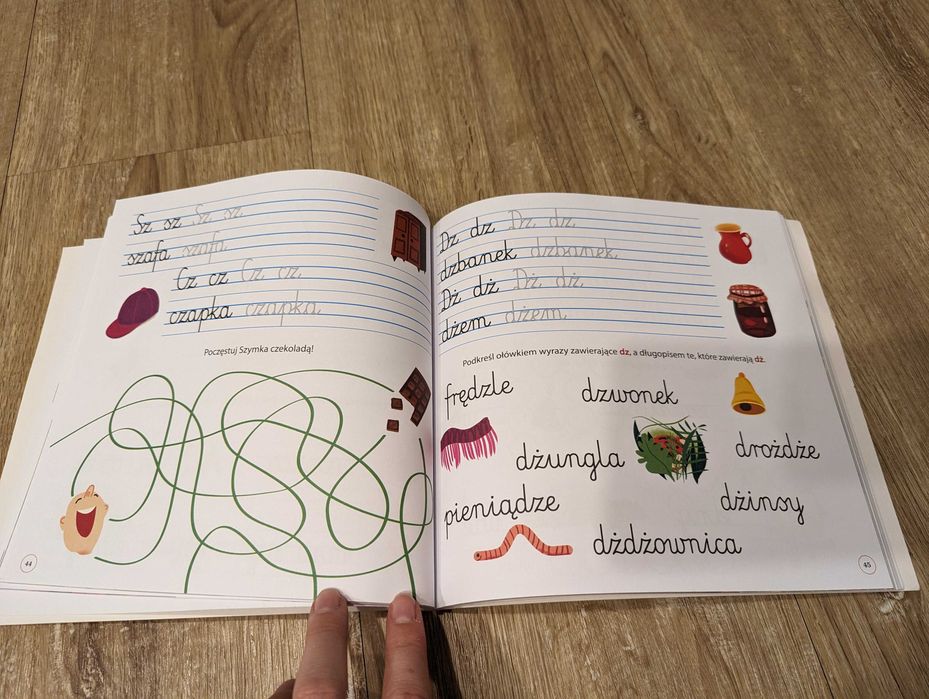 Sz sz Sz sz
szafa szafa
Cz cz Cz cz
czapka czapka
Poczęstuj Szymka czekoladą!
44
Dz dz Dz dz
dzbanek dzbanek
Dż dż Dż dż
dżem dżem
Podkreśl ołówkiem wyrazy zawierające dz, a długopisem te, które zawierają dż.
frędzle dzwonek
dżungla drożdże
pieniądze dżinsy
dżdżownica
45